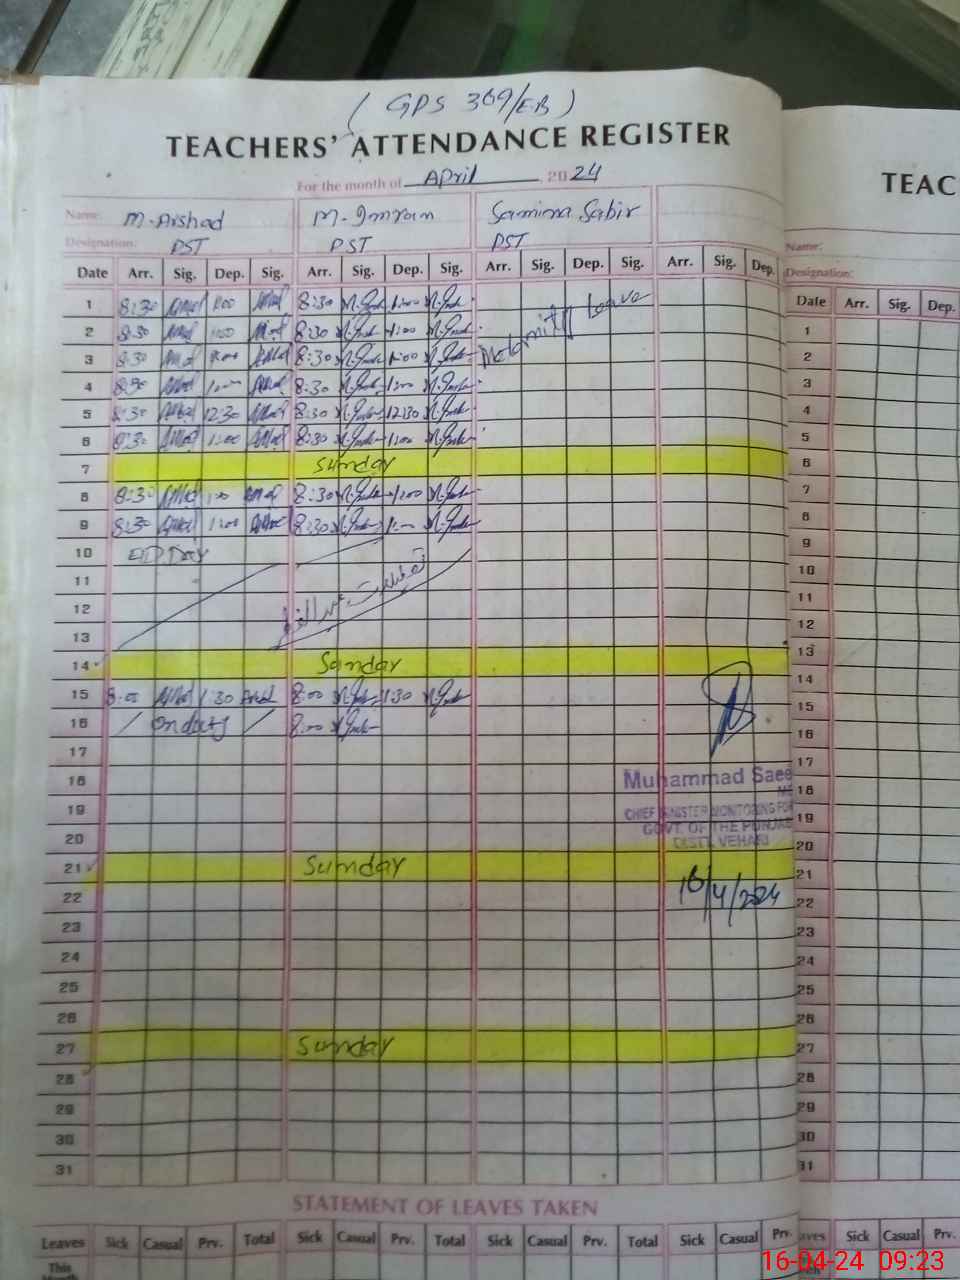 ( GPS 369/EB )
TEACHERS' ATTENDANCE REGISTER
For the month of April, 2024
Name: M-Arshad M-Imran Samina Sabir
Designation: PST PST PST
Date Arr. Sig. Dep. Sig. Arr. Sig. Dep. Sig. Arr. Sig. Dep. Sig. Arr. Sig. Dep.
1 8:30 1:00 8:30 1:00
2 8:30 1:00 8:30 1:00
3 8:30 1:00 8:30 1:00
Leave
4 8:30 1:00 8:30 1:00
5 8:30 12:30 8:30 12:30
6 8:30 1:00 8:30 1:00
7 Sunday
8 8:30 1:00 8:30 1:00
9 8:30 1:00 8:30 1:00
10 EID Day
11
12
13
14 Sunday
15 8:00 1:30 8:00 1:30
16 on duty 8:00
17
18
19
20
21 Sunday
22
23
24
25
26
27 Sunday
28
29
30
31
Muhammad Saee
CHIEF MINISTER MONITORING FOR
GOVT. OF THE PUNJAB
DISTT. VEHARI
16/4/2024
STATEMENT OF LEAVES TAKEN
Leaves Sick Casual Prv. Total Sick Casual Prv. Total Sick Casual Prv. Total Sick Casual Prv.
This
TEAC
Name:
Designation:
Date Arr. Sig. Dep.
1
2
3
4
5
6
7
8
9
10
11
12
13
14
15
16
17
18
19
20
21
22
23
24
25
26
27
28
29
30
31
aves Sick Casual Prv.
16-04-24 09:23